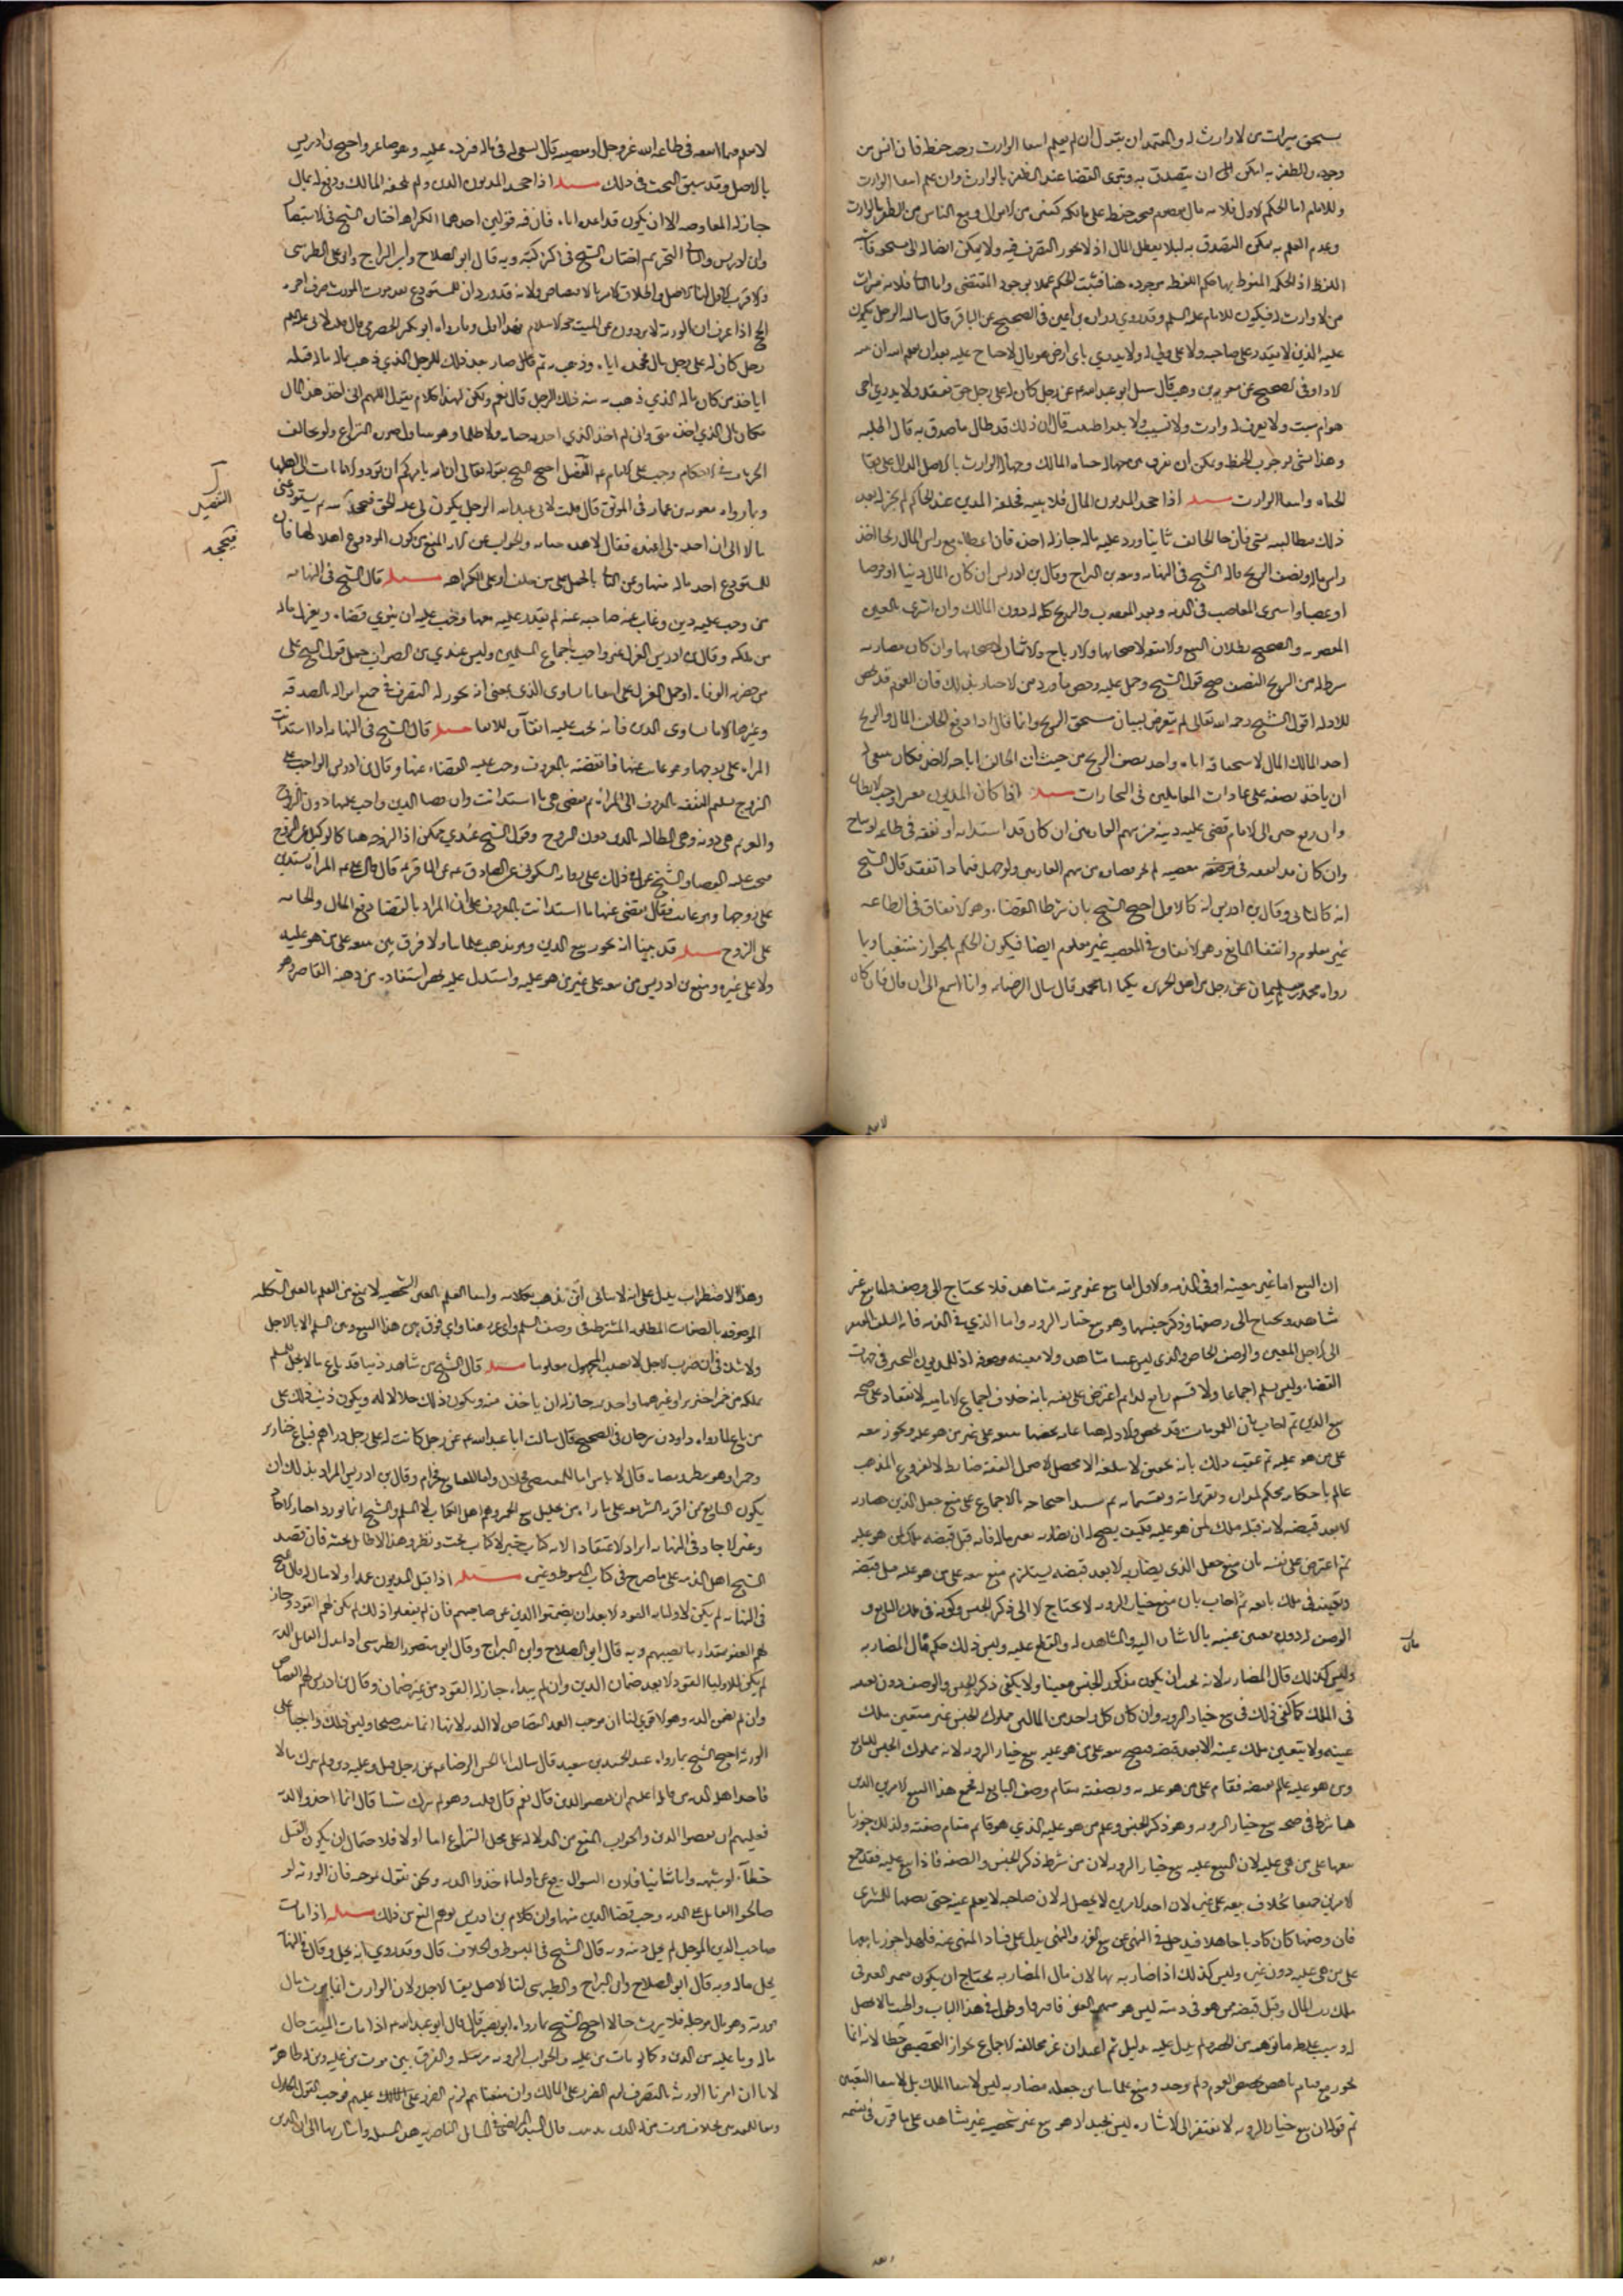 يستحق ميراث من لا وارث له والمعتمد ان نقول ان لم يعلم انتفا الوارث وجب حفظه فان ايس من
وجوده والظفر به امكن ان يتصدق به وينوي القضا عند الظفر بالوارث وان علم انتفا الوارث
وللامام اما الحكم الاول فلانه مال معصوم فيجب حفظه على مالكه كغيره من الاموال ومع الناس من الظفر بالوارث
وعدم العلم به يمكن التصدق به لئلا يعطل المال اذ لا يجوز التصرف فيه ولا يمكن ايصاله الى مستحقه
اللفظ اذ الحكم المنوط بها حكم اللقطة موجوده هنا فيثبت الحكم عملا بوجود المقتضي واما الثاني فلانه ميراث
من لا وارث له فيكون للامام عليه السلام وقد روى زرارة بن اعين في الصحيح عن الباقر قال سالته الرجل يكون
عليه الدين لا يقدر على صاحبه ولا على ولي له ولا يدري باي ارض هو قال لا جناح عليه بعد ان يعلم الله ان نيته
الاداء وفي الصحيح عن معوية بن وهب قال سئل ابو عبد الله عن رجل كان له على رجل حق ففقد ولا يدري احي
هو ام ميت ولا يعرف له وارث ولا نسيب ولا بلد قال اطلبه قال ان ذلك قد طال فاصدق به قال اطلبه
وهذا يشعر بوجوب الحفظ ويمكن ان يفرق بين جهالة حياة المالك وجهالة الوارث بالاصل الدال على بقا
الحياة وانتفا الوارث مسئلة اذا جحد المديون المال ولا بينة فحلفه المدين عند الحاكم لم يجز له بعد
ذلك مطالبته بشي فان جا الحالف تائبا ورد عليه ماله جاز له اخذه فان اعطاه مع راس المال ربحا اخذ
راس ماله ونصف الربح قاله الشيخ في النهاية وتبعه بن البراج وقال بن ادريس ان كان المال دينا او قرضا
او غصبا واشترى الغاصب في الذمة ونقد المغصوب فالربح كله له دون المالك وان اشترى بالعين
المغصوبة فالصحيح بطلان البيع والامتعة لاصحابها والارباح والاثمان لاصحابها وان كان مضاربة
شرط له من الربح النصف صح قول الشيخ وحمل عليه وخص ما ورد من الاخبار بذلك فان العموم قد يخص
للادلة اقول الشيخ رحمه الله تعالى لم يتعرض لبيان مستحق الربح وانما قال اذا دفع الحالف المال والربح
اخذ المالك المال لاستحقاقه اياه واخذ نصف الربح من حيث ان الحالف اباحه الربح فكان ينبغي له
ان ياخذ نصفه على عادات العاملين في التجارات مسئلة اذا كان المديون معسرا وجب الانظار
وان رفع خبره الى الامام قضى عليه دينه من سهم الغارمين ان كان قد استدانه او نفقه في طاعة او مباح
وان كان قد انفقه في معصية لم يجز قضاؤه من سهم الغارمين ولو جهل فيما ذا انفقه قال الشيخ
انه كالثاني وقال بن ادريس انه كالاول احتج الشيخ بان شرط القضا وهو الانفاق في الطاعة
غير معلوم وانتفا المانع وهو الانفاق في المعصية غير معلوم ايضا فيكون الحكم بالجواز منتفيا وبما
رواه محمد بن سليمان عن رجل من اهل الجزيرة يكنى ابا محمد قال سال الرضا وانا اسمع الى ان قال فان كان
لا يعلم فيما انفقه في طاعة الله عز وجل او معصيته قال يسعى له في ماله فيرده عليه وهو صاغر واحتج بن ادريس
بالاصل وقد سبق البحث في ذلك مسئلة اذا جحد المديون الدين ولم يحلفه المالك ودفع له بمال
جاز له المقاصة الا ان يكون قد اودعه اياه فان فيه قولين احدهما الكراهة اختاره الشيخ في الاستبصار
وابن ادريس والثاني التحريم اختاره الشيخ في اكثر كتبه وبه قال ابو الصلاح وابن البراج وابو علي الطبرسي
والاقرب الاول لنا الاصل والخلاف
الحج اذا عرف ان الورثة لا يردون عن الميت حجة الاسلام فهذا اولى وما رواه ابو بكر الحضرمي قال قلت لابي عبد الله
رجل كان له على رجل مال فجحده اياه وذهب به ثم صار بعد ذلك للرجل الذي ذهب بماله مال قبله
اياخذه من كان ماله الذي ذهب به منه ذلك الرجل قال نعم ولكن لهذا كلام يقول اللهم اني اخذ هذا المال
مكان مالي الذي اخذه مني واني لم اخذ الذي اخذته خيانة ولا ظلما وهو يتناول صورة النزاع ولو تخالف
الجزئيات في الاحكام وجب على الامام التفصيل احتج الشيخ بقوله تعالى ان الله يامركم ان تؤدوا الامانات الى اهلها
وبما رواه معوية بن عمار في الموثق قال قلت لابي عبد الله الرجل يكون لي عليه الحق فيجحدنيه ثم يستودعني
مالا الي ان اخذ مالي عنده فقال لا هذه خيانة والجواب عن الاول المنع من كون المودوع اهلا لها فان
للمستودع اخذ ماله منها وعن الثاني بالحمل على من حلف او على الكراهة مسئلة قال الشيخ في النهاية
من وجب عليه دين وغاب عنه صاحبه غيبة لم يقدر عليه معها وجب عليه ان ينوي قضاه ويعزل ماله
من ملكه وقال بن ادريس العزل غير واجب باجماع المسلمين وليس عندي بن الصواب حمل قول الشيخ على
من حضرته الوفاة او حمل العزل على استبقا ما يساوي الدين بمعنى انه يجوز له التصرف في جميع امواله بالصدقة
وغيرها الا ما يساوي الدين فانه يجب عليه ابقاؤه للايفا مسئلة قال الشيخ في النهاية اذا استدانت
المراة على زوجها وهو غايب عنها فانفقته بالمعروف وجب عليه القضاء عنها وقال بن ادريس الواجب على
الزوج تسليم النفقة بالمعروف الى المراة ثم تقضي هي ما استدانت وان قضا الدين واجب عليها دون الزوج
والغريم هي دونه وهي المطالبة بالدين دون الزوج وقول الشيخ عندي ممكن اذ الزوجة هنا كالوكيل عن الزوج
فيجب عليه القضا والشيخ عول في ذلك على رواية السكوني عن الصادق عن الباقر قال قال علي المراة تستدين
على زوجها وهو غايب فقال يقضي عنها ما استدانت بالمعروف على ان المراد بالقضا دفع المال والحاصل
على الزوج مسئلة قد بينا انه يجوز بيع الدين وهو مذهب علمائنا ولا فرق بين بيعه على من هو عليه
ولا على غيره ومنع بن ادريس من بيعه على غير من هو عليه واستدل عليه بما استفاده من ذهنه القاصر وهو
التفصيل
فيجحد
ان المبيع اما عين معينة او في الذمة والاول اما بيع عين مرئية مشاهدة فلا يحتاج الى وصف واما بيع عين
شاهدة ويحتاج الى وصفها وذكر جنسها وهو بيع خيار الروية واما الذي في الذمة فانه السلف المفتقر
الى الاجل المعين والوصف الخاص والدين ليس عينا مشاهدة ولا معينة موصوفة اذ للمديون التخيير في جهات
القضاء وليس بسلم اجماعا ولا قسم رابع لذلك ثم اعترض على نفسه بانه خلاف اجماع الامامية لانعقاده على صحة
بيع الدين ثم اجاب بان العمومات قد تخص والادلة هنا عامة يخصها بيعه على غير من هو عليه ونجوز بيعه
على من هو عليه ثم عقب ذلك بانه تحقيق لا يبلغه الا محصل لاصول الفقه ضابط لفروع المذهب
عالم باحكامه محكم لمداره وتقريراته وتقسيماته ثم احتجاجه بالاجماع على منع جعل الدين مضاربة
الا بعد قبضه لانه قبله ملك لمن هو عليه فكيف يصح له ان يضاربه بغير ماله فانه قبل قبضه ملك لمن هو عليه
ثم اعترض على نفسه بان منع جعل الدين مضاربة الا بعد قبضه يستلزم منع بيعه على من هو عليه قبل قبضه
وتعينه في ملك بائعه ثم اجاب بان بيع خيار الروية لا يحتاج الا الى ذكر الجنس وكونه في ملك البايع و
الوصف له دون تعيين عينه بالاشارة اليه والمشاهدة له والقطع عليه وليس ذلك حكم مال المضاربة
وليس كذلك مال المضاربة لانه يجب ان يكون مذكور الجنس معينا ولا يكفي ذكر الجنس والوصف دون تعينه
في الملك كما كفى ذلك في بيع خيار الروية وان كان كل واحد من المالين مملوك الجنس غير متعين ملك
عينه ولا يتعين ملك عينه الا بعد قبضه فيصح بيعه على من هو عليه بيع خيار الروية لانه مملوك الجنس للبايع
ومن هو عليه عالم بصفته فقام علم من هو عليه به وبصفته مقام وصف البايع له فجمع هذا المبيع الامرين الذين
هما شرط في صحة بيع خيار الروية وهو ذكر الجنس وعلم من هو عليه الذي هو قائم مقام صفته ولذلك جوزنا
بيعها على من هي عليه لان المبيع عليه بيع خيار الروية لان من شرطه ذكر الجنس والصفة فاذا بيع عليه فقد جمع
الامرين جميعا بخلاف بيعه على غيره لان احد الامرين لا يحصل له لان صاحبه لا يعلم عينه حتى يصفها للمشتري
فان وصفها كان كاذبا جاهلا فيدخل في النهي عن بيع الغرر والنهي يدل على فساد المنهي عنه فلهذا جوزنا بيعها
على من هي عليه دون غيره وليس كذلك اذا ضاربه بها لان مال المضاربة يحتاج ان يكون متميز العين في
ملك رب المال وقبل قبضه ممن هو في ذمته ليس هو متميز العين فافترقا
له وسبب غلطه ما توهمه من الحصر ولم يدل عليه دليل ثم اعتذاره عن مخالفة الاجماع بجواز التخصيص خطا لانه انما
يجوز مع قيام ناهض تخصص العموم ولم يوجد ومنع علمائنا من جعله مضاربة ليس لانتفا الملك بل لانتفا التعين
ثم قوله ان بيع خيار الروية لا يفتقر الى الاشارة ليس بجيد اذ هو بيع عين شخصية غير مشاهدة على ما قرره في قسمه
مال
وهذا الاضطراب يدل على انه لا يبالي اين يذهب بكلامه وانتفا العلم بالعين الشخصية لا يمنع من العلم بالعين الكلية
الموصوفة بالصفات المطلوبة المشترطة في وصف السلم واي غرر هنا واي فرق بين هذا المبيع وبين السلم الا بالاجل
ولا شك في ان ضرب الاجل لا يصير المجهول معلوما مسئلة قال الشيخ من شاهد ذميا قد باع ما لا يحل للمسلم
تملكه من خمر او خنزير او غيرهما واخذ ثمنه جاز له ان ياخذه منه ويكون ذلك حلالا له ويكون ذنب ذلك على
من باع لما رواه داود بن سرحان في الصحيح قال سالت ابا عبد الله عن رجل كانت له على رجل دراهم فباع خنازير
وخمرا وهو ينظر فقضاه قال لا باس اما للمقتضي فحلال واما للبايع فحرام وقال بن ادريس المراد بذلك ان
يكون البايع ممن اقرته الشريعة على ما يراه من تحليل بيع الخمر وهم اهل الكتاب لا المسلم والشيخ انما يورد اخبار الاحاد
وغير الاحاد في النهاية ايرادا لا اعتقادا لانه كتاب خبر لا كتاب بحث ونظر وهذا لا طائل تحته فان قصد
الشيخ اهل الذمة على ما صرح في كتاب المبسوط وغيره مسئلة اذا قتل المديون عمدا ولا مال له قال الشيخ
في النهاية لم يكن لاوليائه القود الا بعد ان يضمنوا الدين عن صاحبهم فان لم يفعلوا ذلك لم يكن لهم القود وجاز
لهم العفو بمقدار ما يصيبهم وبه قال ابو الصلاح وابن البراج وقال ابو منصور الطبرسي اذا بذل القاتل الدية
لم يكن للاولياء القود الا بعد ضمان الدين وان لم يبذل جاز لهم القود من غير ضمان وقال بن ادريس لهم القصاص
وان لم يضمنوا الدية وهو الاقوى لنا ان موجب العمد القصاص لا الدية لانها انما تثبت صلحا وليس ذلك واجبا على
الورثة احتج الشيخ بما رواه عبد الحميد بن سعيد قال سالت ابا الحسن الرضا عن رجل قتل وعليه دين ولم يترك مالا
فاخذ اهله الدية من قاتله اعليهم ان يقضوا الدين قال نعم قال قلت وهو لم يترك شيئا قال انما اخذوا الدية
فعليهم ان يقضوا الدين والجواب المنع من الدلالة على محل النزاع اما اولا فلاحتمال ان يكون القتل
خطأ او شبهه واما ثانيا فلان السؤال وقع عن اولياء اخذوا الدية ونحن نقول بموجبه فان الورثة لو
صالحوا القاتل على الدية وجب قضا الدين منها وان كلام بن ادريس يوهم المنع من ذلك مسئلة اذا مات
صاحب الدين المؤجل لم يحل دينه وبه قال الشيخ في المبسوط والخلاف قال وقد روي انه يحل وقال في النهاية
يحل ماله وبه قال ابو الصلاح وابن البراج والطبرسي لنا الاصل بقا الاجل ولان الوارث انما يرث مال
مورثه وهو مال مؤجل فلا يرث حالا احتج الشيخ بما رواه ابو بصير قال قال ابو عبد الله اذا مات الميت حل
ماله وما عليه من الدين وكما لو مات من عليه والجواب الرواية مرسلة والفرق بين موت من عليه ومن له ظاهر
لانا ان امرنا الورثة بالتصرف لزم الضرر على المالك وان منعناهم لزم الضرر عليهم فوجب القول بالحلول
قال السيد المرتضى في المسائل الناصرية هذه المسئلة واشار بها الى ان الدين